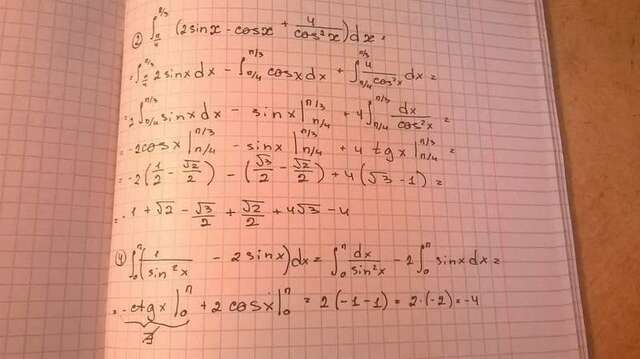 ② ∫_{π/4}^{π/3} (2sinx - cosx + 4/cos²x)dx =
= ∫_{π/4}^{π/3} 2sinxdx - ∫_{π/4}^{π/3} cosxdx + ∫_{π/4}^{π/3} 4/cos²x dx =
= 2∫_{π/4}^{π/3} sinxdx - sinx|_{π/4}^{π/3} + 4∫_{π/4}^{π/3} dx/cos²x =
= -2cosx|_{π/4}^{π/3} - sinx|_{π/4}^{π/3} + 4 tgx|_{π/4}^{π/3} =
= -2(1/2 - √2/2) - (√3/2 - √2/2) + 4(√3 - 1) =
= -1 + √2 - √3/2 + √2/2 + 4√3 - 4
④ ∫_0^π (1/sin²x - 2sinx)dx = ∫_0^π dx/sin²x - 2∫_0^π sinxdx =
= -ctgx|_0^π + 2cosx|_0^π = 2(-1-1) = 2·(-2) = -4